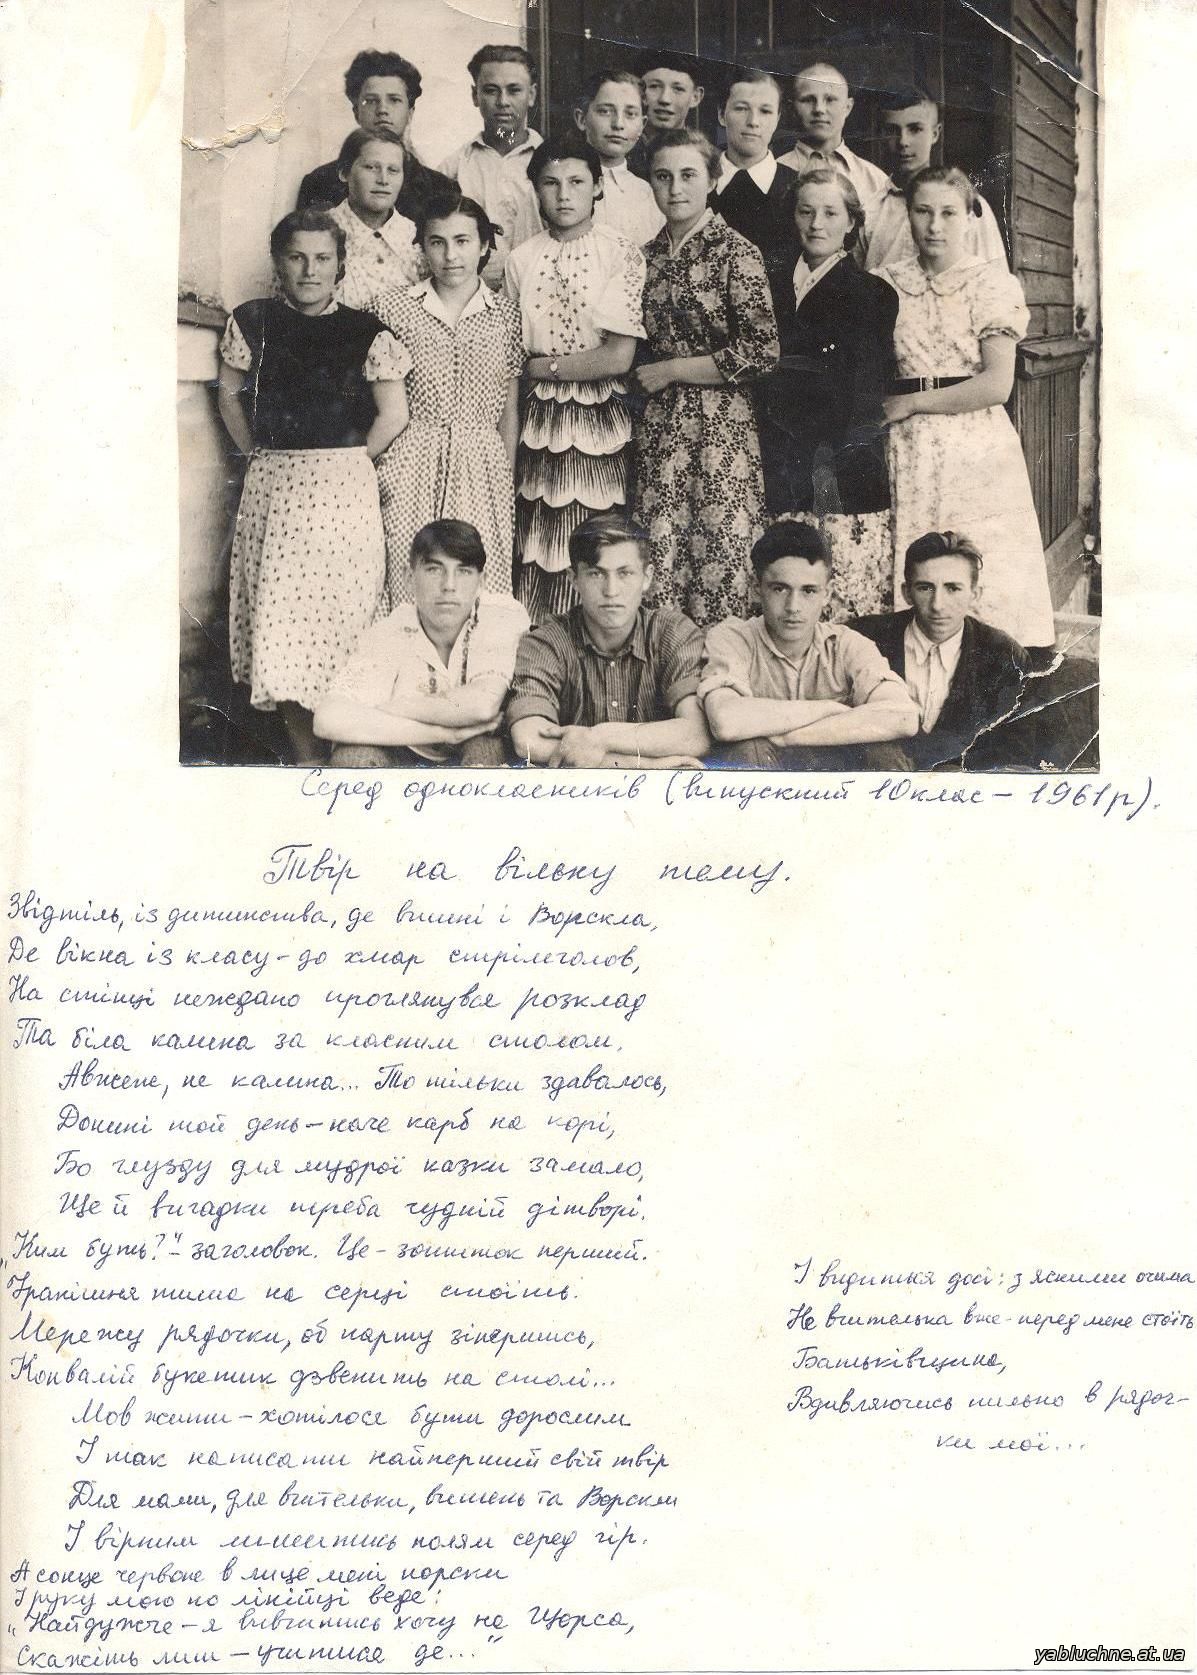 Серед однокласників (випускний 10 клас – 1961 р).
Твір на вільну тему.
Звідтіль, із дитинства, де вишні і Ворскла,
Де вікна із класу – до хмар стрілголов,
На стінці неждано проглянувся розклад
Та біла калина за класним столом.
Авжеж, не калина... То тільки здавалось,
Донині той день – наче карб на корі,
Бо глузду для мудрої казки замало,
Ще й вигадки треба чудній дітворі.
„Ким буть?" – заголовок. Це – зошиток перший.
Травішня тиша на серці стоїть.
Мережу рядочки, об парту зіпершись,
Конвалій букетик дзвенить на столі...
Мов жити – хотілося бути дорослим
І так написати найперший свій твір
Для мами, для вчительки, вишень та Ворскли
І вірним лишитись полям серед гір.
А сонце червоне в лице мені порски
І руку мою по лінійці веде:
„Найдужче – я вивчитись хочу на Щорса,
Скажіть лиш – учитися де..."
І видиться досі: з ясними очима
Не вчителька вже – перед мене стоїть
Батьківщина,
Вдивляючись пильно в рядоч-
ки мої...
yabluchne.at.ua